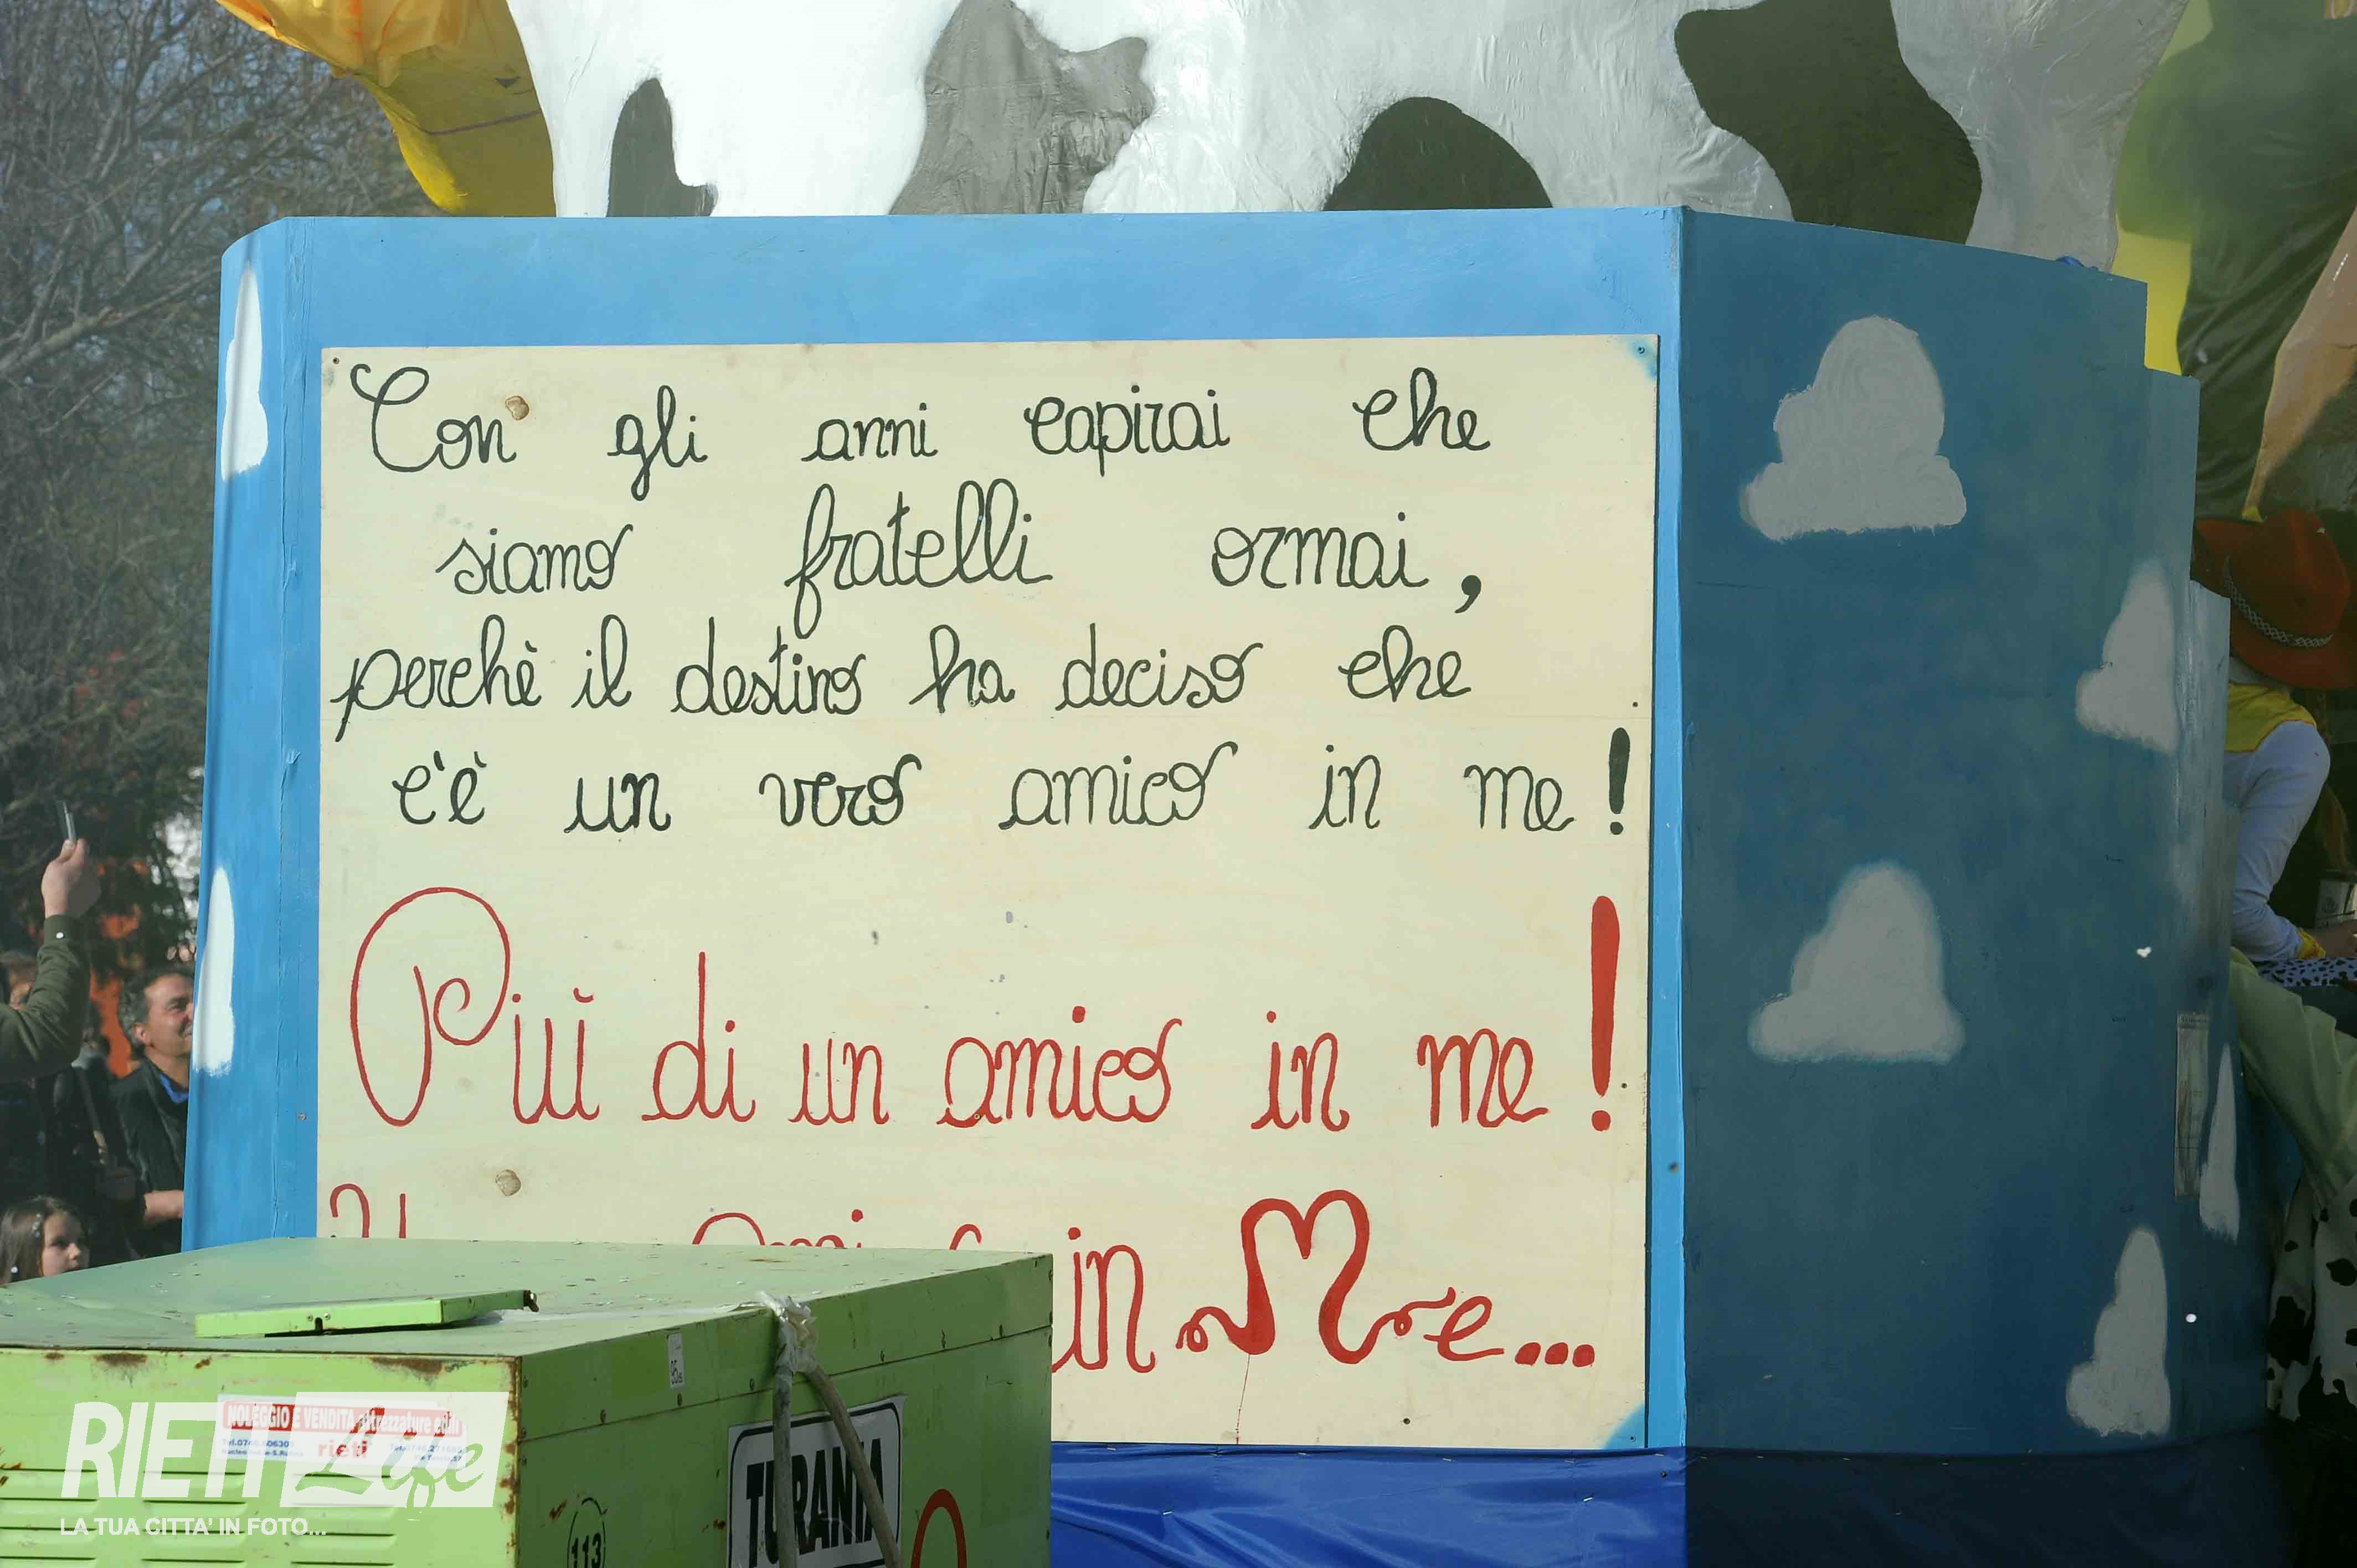 Con gli anni capirai che
siamo fratelli ormai,
perchè il destino ha deciso che
c'è un vero amico in me!
Più di un amico in me!
in Me...
NOLEGGIO E VENDITA attrezzature edili
rieti
RIETI Life
LA TUA CITTA' IN FOTO...
TURANIA
113